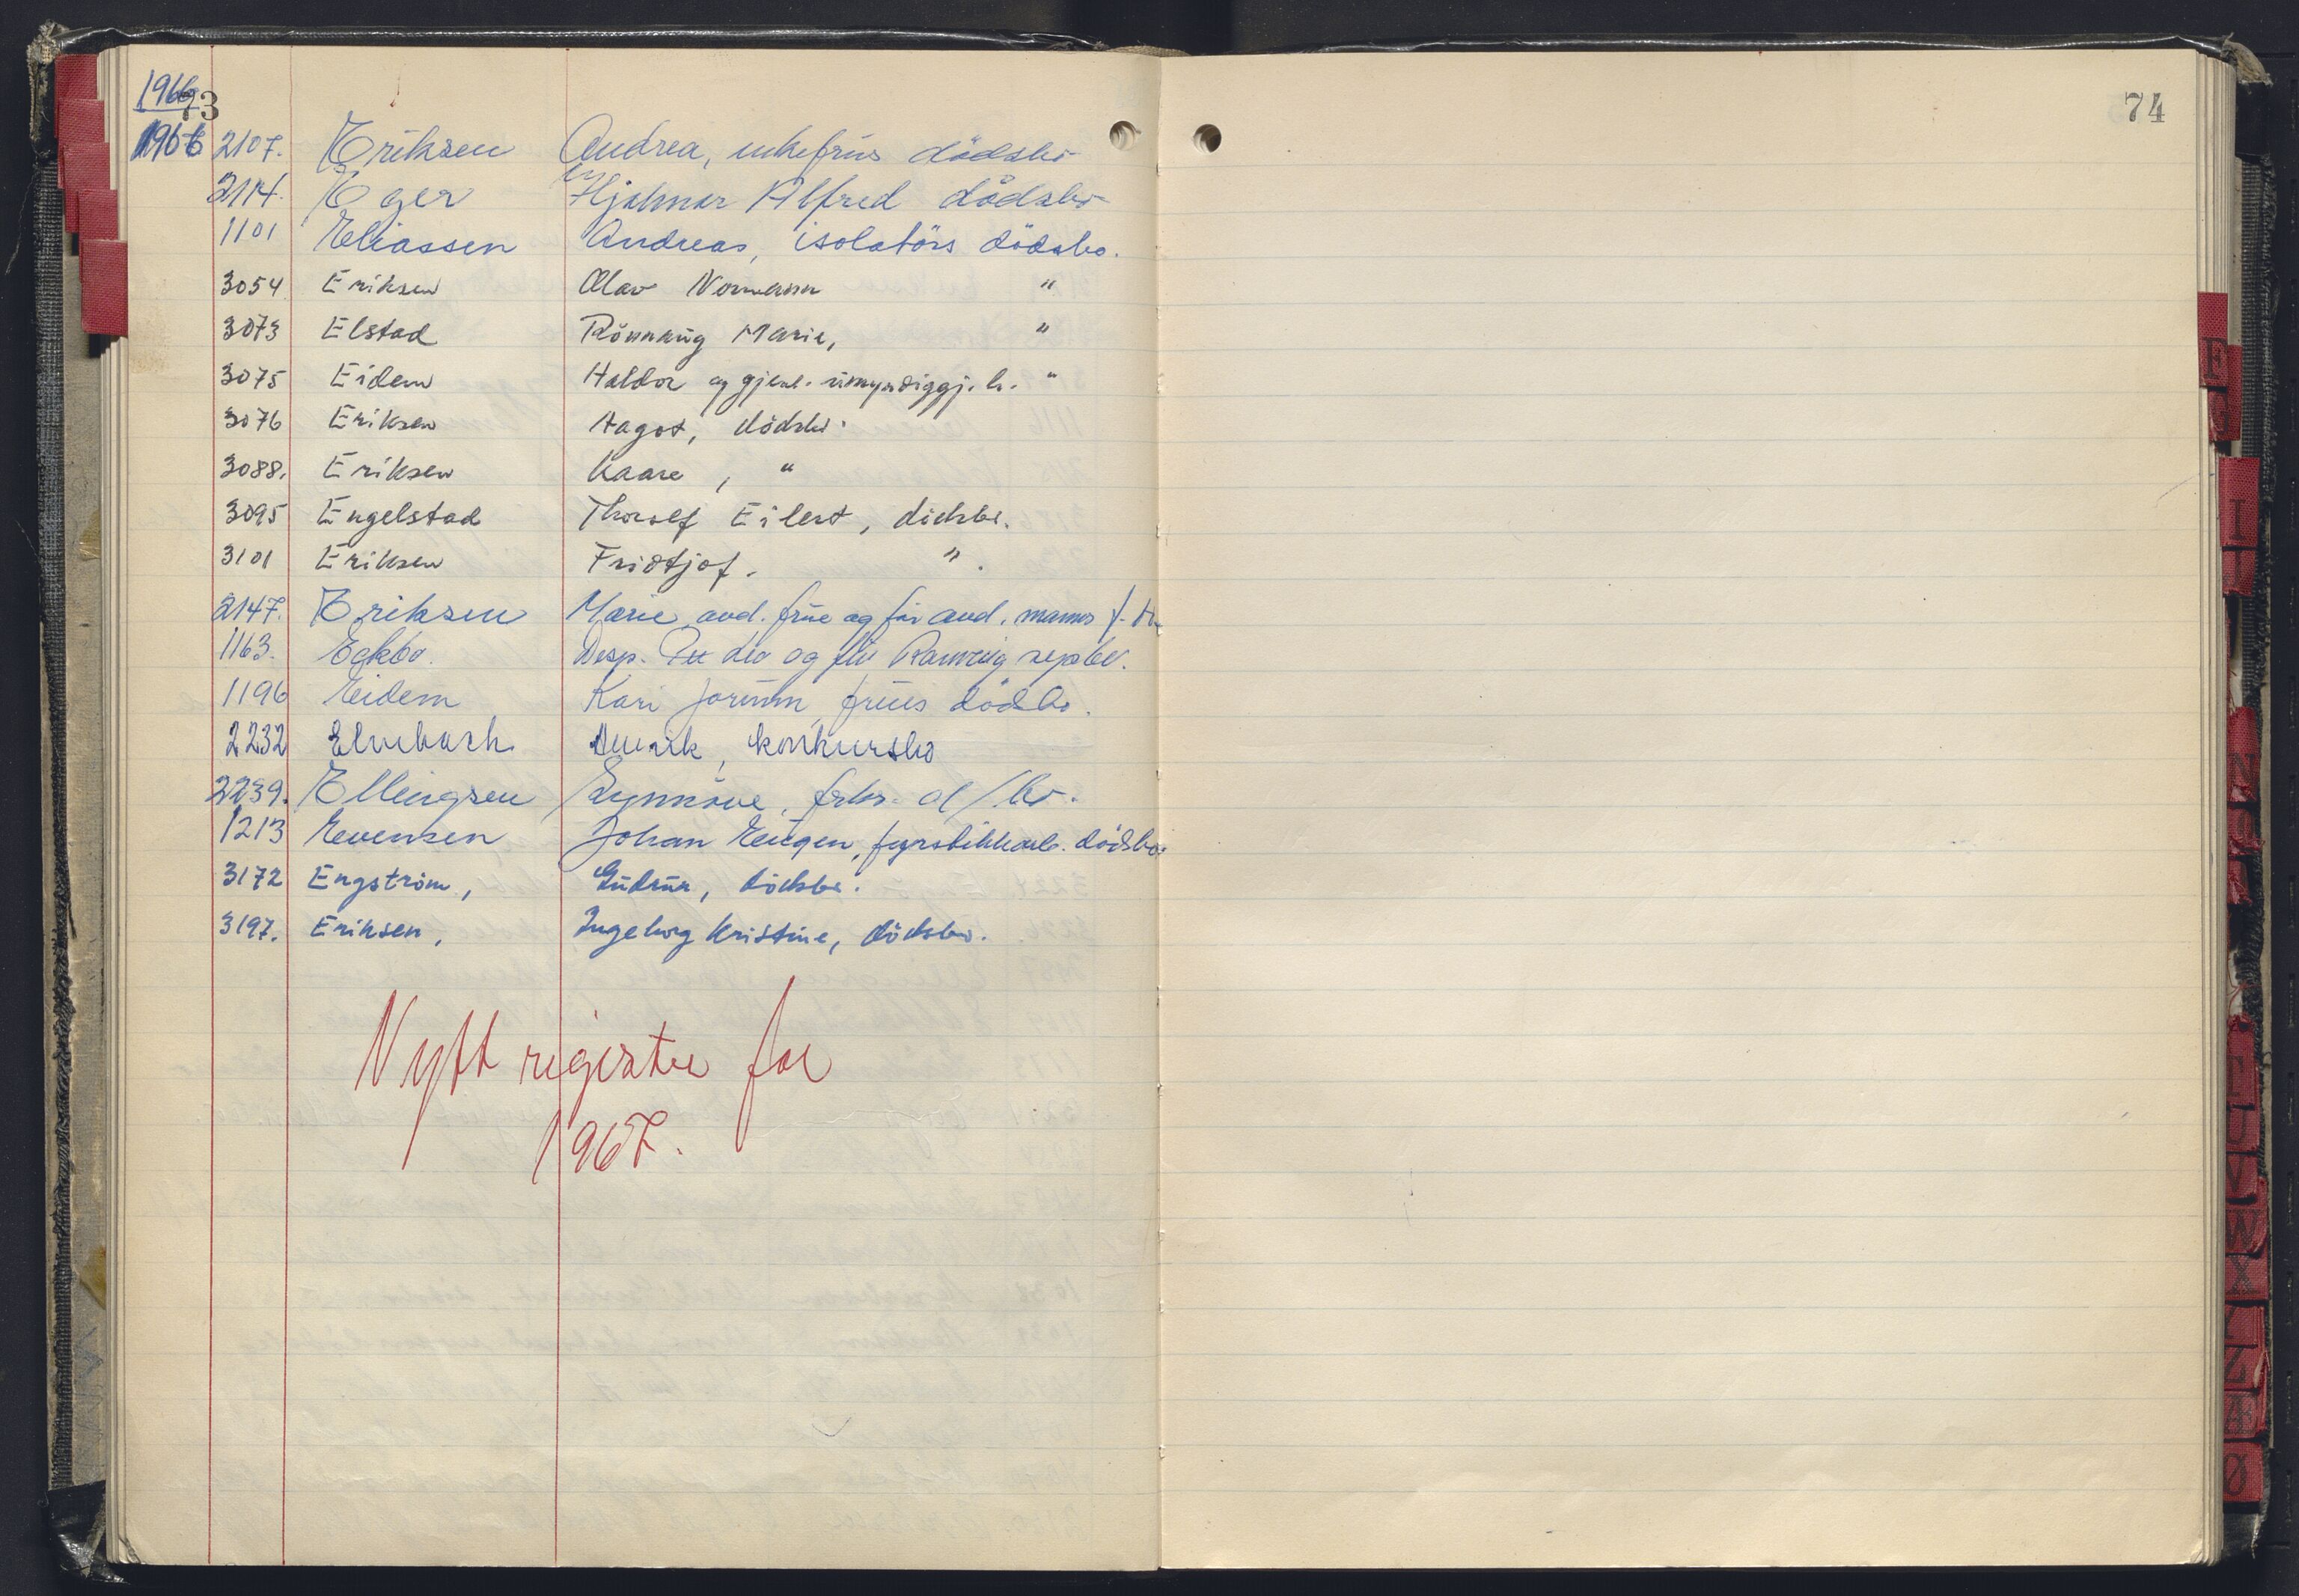 1966
73
1966 2107. Eriksen Andrea, enkefrus dødsbo
2114. Eger Hjalmar Alfred dødsbo
1101 Eliassen Andreas, isolatørs dødsbo.
3054 Eriksen Olav Normann "
3073 Elstad Rönnaug Marie, "
3075 Eidem Haldor og gjenl. umyndiggj. h. "
3076 Eriksen Aagot, dødsbo.
3088. Eriksen Kaare, "
3095 Engelstad Thorolf Eilert, dødsbo.
3101 Eriksen Fridtjof. "
2147. Eriksen Marie avd. frue og før avd. manns f.
1163. Eckbo. Desp. og fru
1196 Eidem Kari Jorunn, frues dødsbo.
2232 konkursbo
2239. Ellingsen Synnöve, frks. d/bo.
1213 Evensen Johan Eugen, fyrstikkarb. dødsbo.
3172 Engström, Gudrun, dødsbo.
3197. Eriksen, Ingeborg Kristine, dødsbo.
Nytt register for
1967.
74
F
I
J
N
T
U
V
W
X
Y
Z
Æ
Ø